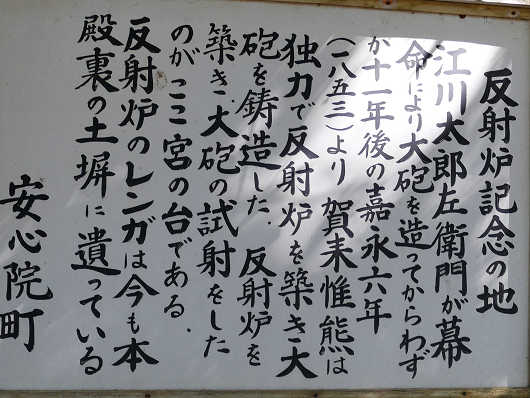 反射炉記念の地
江川太郎左衛門が幕
命により大砲を造ってからわず
か十一年後の嘉永六年
(一八五三)より賀来惟熊は
独力で反射炉を築き大
砲を鋳造した．反射炉を
築き．大砲の試射をした
のがここ宮の台である．
反射炉のレンガは今も本
殿裏の土塀に遺っている
安心院町